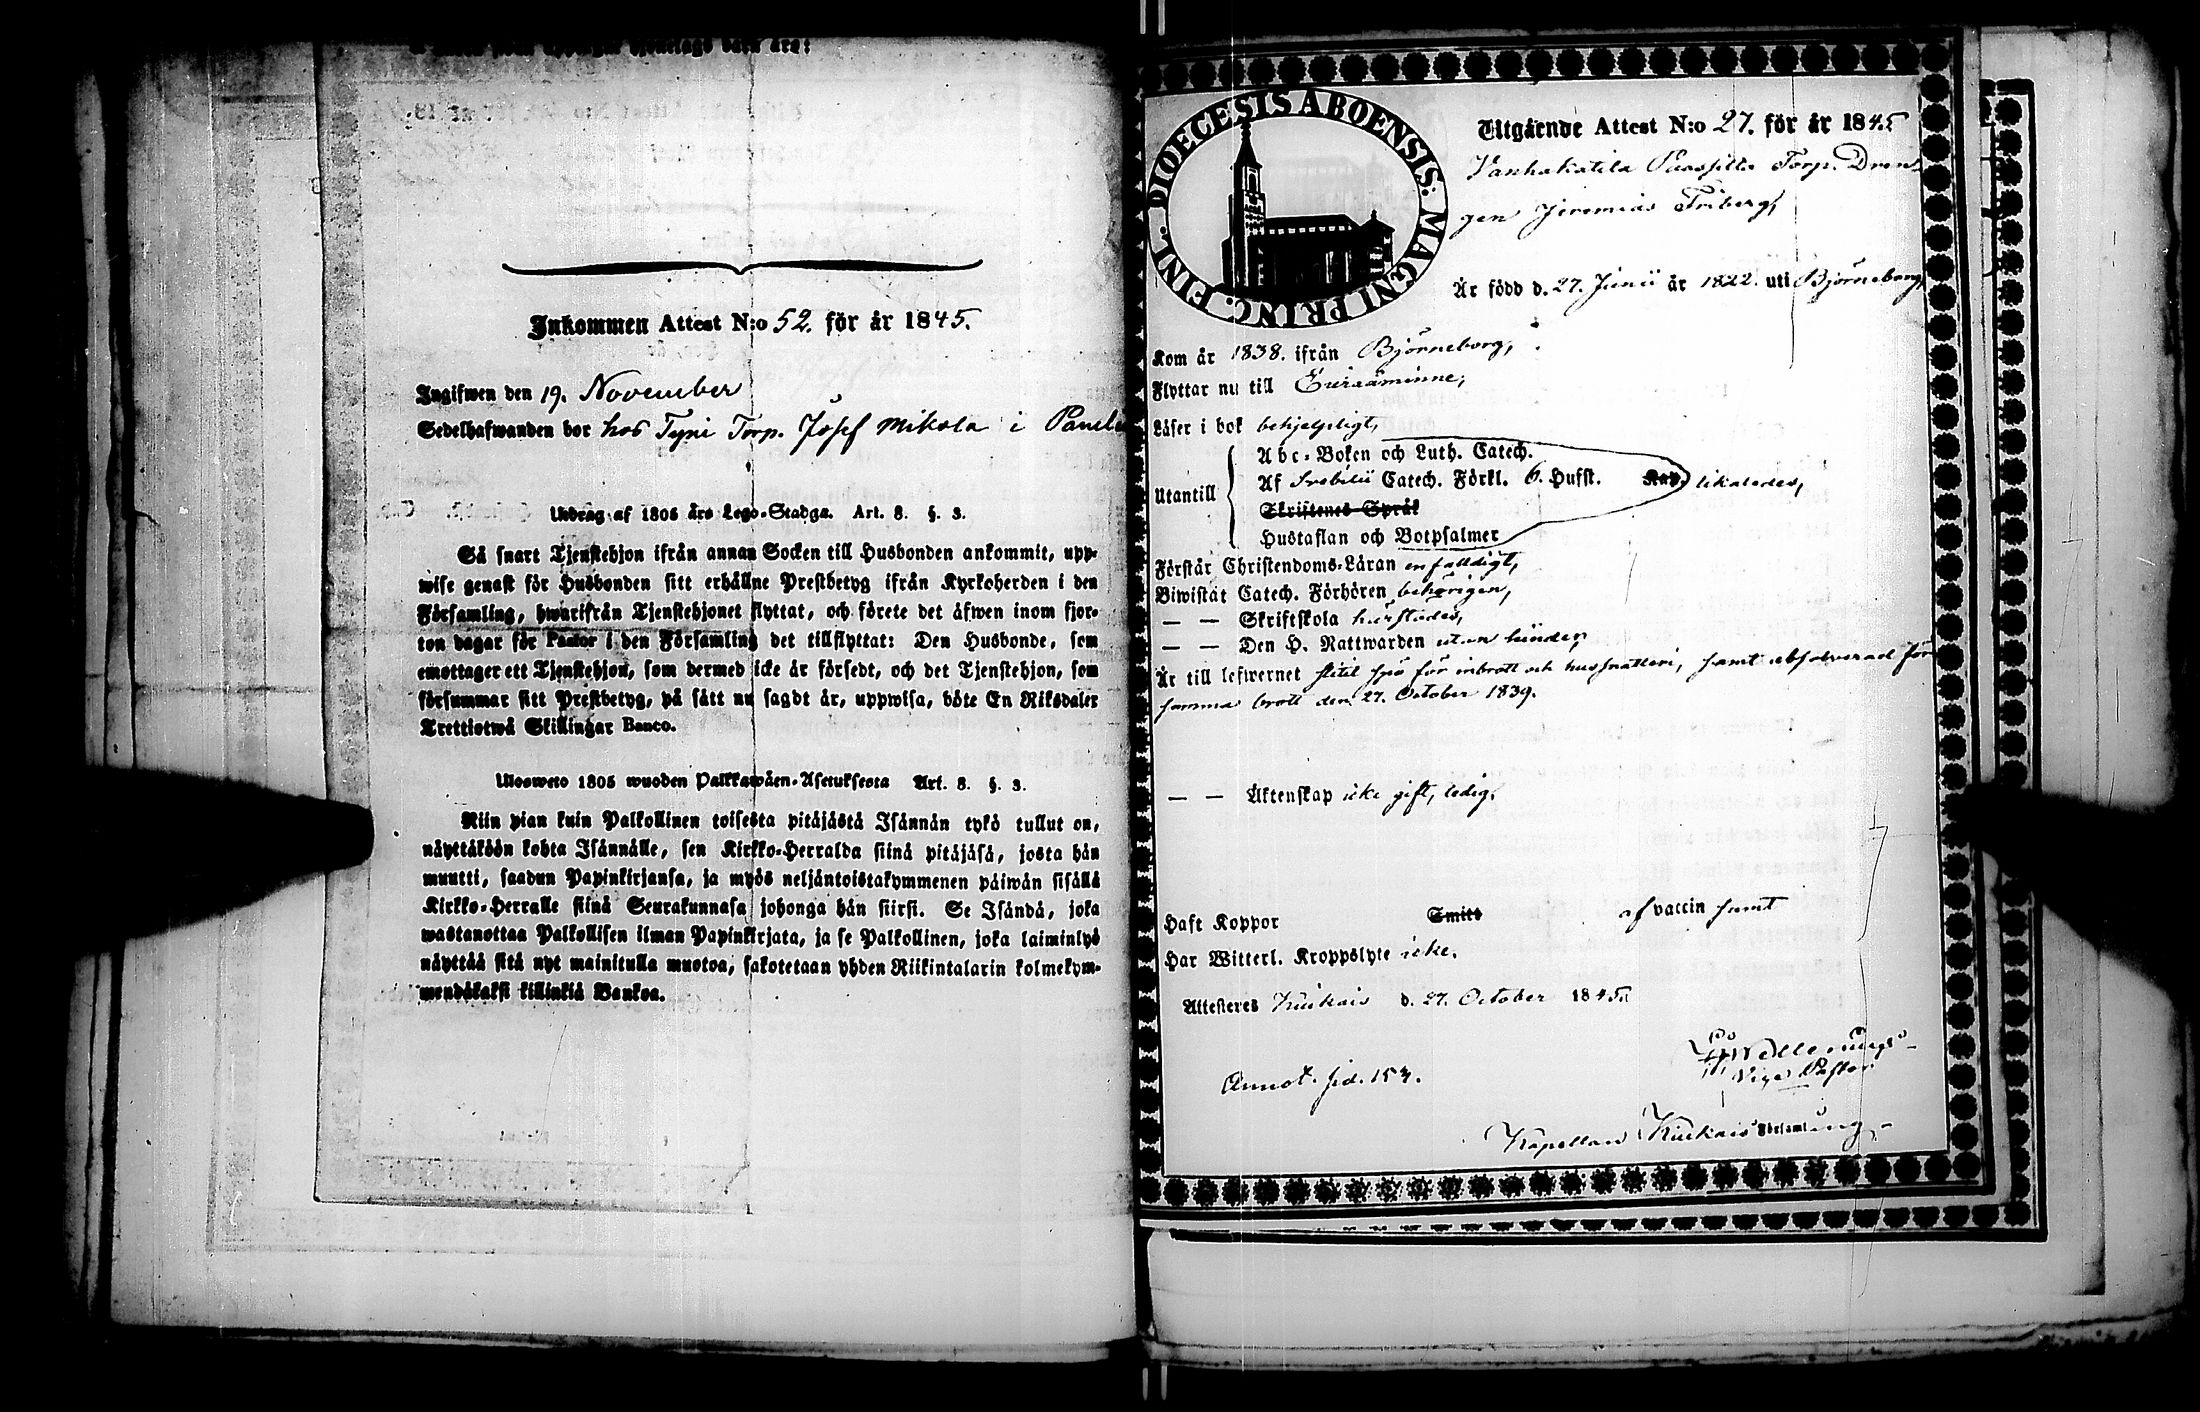 Inkommen Attest N:o 52. för år 1845.
Ingifwen den 19. November
Sedelhafwanden bor hos Typi Torp. Josef Mikola i Panelia
Utdrag af 1805 års Lego-Stadga. Art. 8. §. 3.
Så snart Tjenstehjon ifrån annan Socken till Husbonden ankommit, upp-
wise genast för Husbonden sitt erhållne Prestbetyg ifrån Kyrkoherden i den
Församling, hwarifrån Tjenstehjonet flyttat, och förete det äfwen inom fjor-
ton dagar för Pastor i den Församling det tillflyttat: Den Husbonde, som
emottager ett Tjenstehjon, som dermed icke är försedt, och det Tjenstehjon, som
försummar sitt Prestbetyg, på sätt nu sagdt är, uppwisa, böte En Riksdaler
Trettiotwå Skillingar Banco.
Ulosweto 1805 wuoden Palkkawäen-Asetuksesta Art. 8. §. 3.
Niin pian kuin Palkollinen toisesta pitäjästä Isännän tykö tullut on,
näyttäköön kohta Isännälle, sen Kirkko-Herralda siinä pitäjäsä, josta hän
muutti, saadun Papinkirjansa, ja myös neljäntoistakymmenen päiwän sisällä
Kirkko-Herralle siinä Seurakunnasa johonga hän siirsi. Se Isändä, joka
wastanottaa Palkollisen ilman Papinkirjata, ja se Palkollinen, joka laiminlyö
näyttää sitä nyt mainitulla muotoa, sakotetaan yhden Riikintalarin kolmekym-
mendäkaksi killinkiä Bankoa.
DIOECESIS ABOENSIS: MAGNI PRINC. FINL.
Utgående Attest N:o 27. för år 1845
Vanhakatila Torp. Drän-
gen Jeremias Friberg,
Är född d. 27. Junii år 1822. uti Björneborg,
Kom år 1838. ifrån Björneborg,
Flyttar nu till Euraåminne,
Läser i bok behjelpligt,
Utantill
Abc-Boken och Luth. Catech.
Af Svebilii Catech. Förkl. 6. Hufst. Kap. likaledes,
Skriftenes Språk
Hustaflan och Botpsalmer
Förstår Christendoms-Läran enfalldigt,
Biwistat Catech. Förhören behörigen,
— — Skriftskola härstädes,
— — Den H. Nattwarden utan hinder,
Är till lefwernet slitit spö för inbrott och hussnatteri, samt absolverad för
samma brott den 27. October 1839.
— — Äktenskap icke gift, ledig.
Haft Koppor Smitt af vaccin samt
Har Witterl. Kroppslyte icke.
Attesteres Kiukais d. 27. October 1845
Vice Pastor
Annot. pd. 154.
Kapellan Kiukais Församling